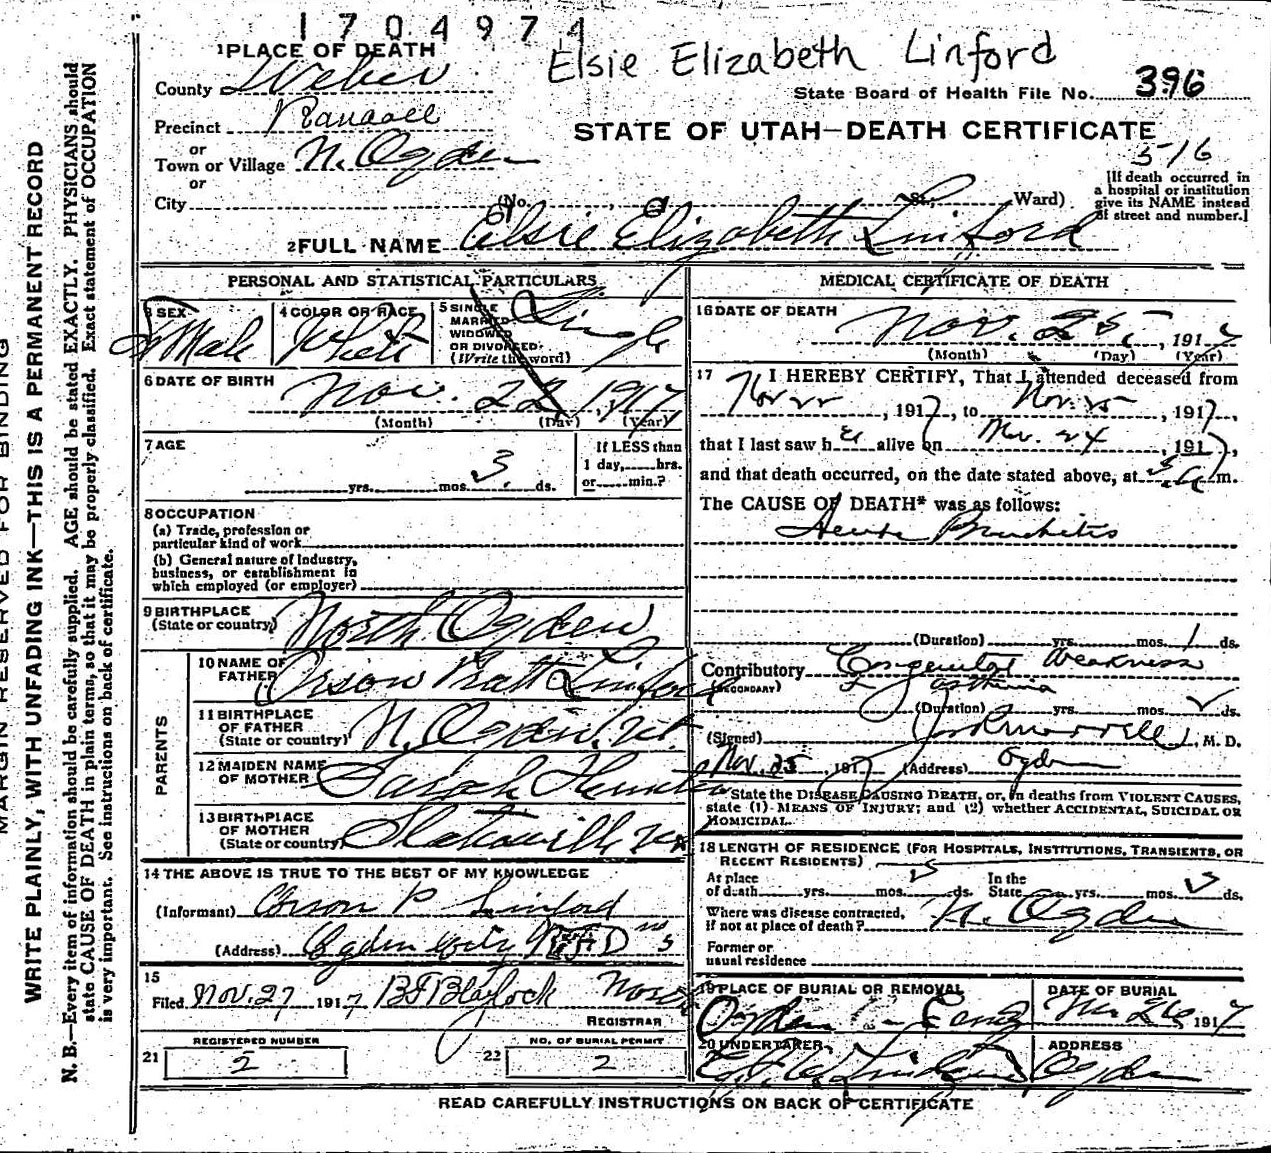 1704974
Elsie Elizabeth Linford
1 PLACE OF DEATH
County Weber
State Board of Health File No. 396
Precinct Randall
STATE OF UTAH—DEATH CERTIFICATE
or
Town or Village N. Ogden
516
or
City (No. , St. Ward)
[If death occurred in
a hospital or institution
give its NAME instead
of street and number.]
2 FULL NAME Elsie Elizabeth Linford
PERSONAL AND STATISTICAL PARTICULARS
3 SEX
Female
4 COLOR OR RACE
White
5 SINGLE
MARRIED
WIDOWED
OR DIVORCED
(Write the word)
Single
6 DATE OF BIRTH
Nov. 22, 1917
(Month) (Day) (Year)
7 AGE
yrs. mos. 3 ds.
If LESS than
1 day, hrs.
or min.?
8 OCCUPATION
(a) Trade, profession or
particular kind of work
(b) General nature of industry,
business, or establishment in
which employed (or employer)
9 BIRTHPLACE
(State or country)
North Ogden
PARENTS
10 NAME OF
FATHER
Orson Pratt Linford
11 BIRTHPLACE
OF FATHER
(State or country)
N. Ogden. Ut.
12 MAIDEN NAME
OF MOTHER
Sarah
13 BIRTHPLACE
OF MOTHER
(State or country)
14 THE ABOVE IS TRUE TO THE BEST OF MY KNOWLEDGE
(Informant) Orson P Linford
(Address) Ogden City RFD no 3
15
Filed Nov. 27 1917 Blaylock
REGISTRAR
REGISTERED NUMBER
21 2
NO. OF BURIAL PERMIT
22 2
MEDICAL CERTIFICATE OF DEATH
16 DATE OF DEATH
Nov. 25, 1917
(Month) (Day) (Year)
17 I HEREBY CERTIFY, That I attended deceased from
Nov 22, 1917, to Nov. 25, 1917,
that I last saw her alive on Nov. 24, 1917,
and that death occurred, on the date stated above, at 5 a m.
The CAUSE OF DEATH* was as follows:
Acute Bronchitis
(Duration) yrs. mos. 1 ds.
Contributory Congenital Weakness
(SECONDARY)
(Duration) yrs. mos. ds.
(Signed) , M. D.
Nov. 25, 1917 (Address) Ogden
*State the DISEASE CAUSING DEATH, or, in deaths from VIOLENT CAUSES,
state (1) MEANS OF INJURY; and (2) whether ACCIDENTAL, SUICIDAL OR
HOMICIDAL.
18 LENGTH OF RESIDENCE (FOR HOSPITALS, INSTITUTIONS, TRANSIENTS, OR
RECENT RESIDENTS)
At place
of death yrs. mos. 3 ds.
In the
State yrs. mos. 3 ds.
Where was disease contracted,
if not at place of death? N. Ogden
Former or
usual residence
19 PLACE OF BURIAL OR REMOVAL
Ogden
DATE OF BURIAL
Nov 26, 1917
20 UNDERTAKER
ADDRESS
Ogden
READ CAREFULLY INSTRUCTIONS ON BACK OF CERTIFICATE
MARGIN RESERVED FOR BINDING
WRITE PLAINLY, WITH UNFADING INK—THIS IS A PERMANENT RECORD
N. B.—Every item of information should be carefully supplied. AGE should be stated EXACTLY. PHYSICIANS should
state CAUSE OF DEATH in plain terms, so that it may be properly classified. Exact statement of OCCUPATION
is very important. See instructions on back of certificate.